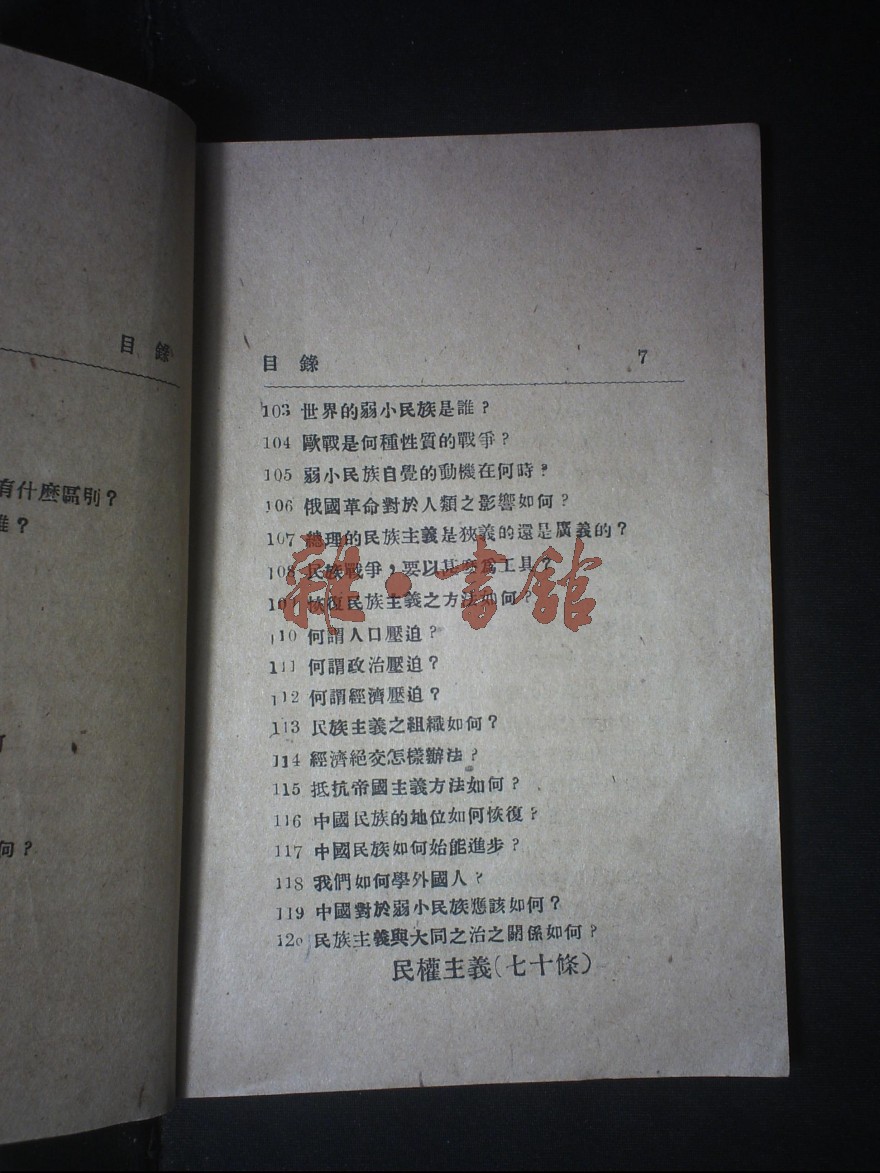 目錄
有什麽區別？
誰？
何？
目錄 7
103 世界的弱小民族是誰？
104 歐戰是何種性質的戰爭？
105 弱小民族自覺的動機在何時？
106 俄國革命對於人類之影響如何？
107 總理的民族主義是狹義的還是廣義的？
108 民族戰爭，要以甚麽爲工具？
109 恢復民族主義之方法如何？
雜·書館
110 何謂人口壓迫？
111 何謂政治壓迫？
112 何謂經濟壓迫？
113 民族主義之組織如何？
114 經濟絕交怎樣辦法？
115 抵抗帝國主義方法如何？
116 中國民族的地位如何恢復？
117 中國民族如何始能進步？
118 我們如何學外國人？
119 中國對於弱小民族應該如何？
120 民族主義與大同之治之關係如何？
民權主義（七十條）